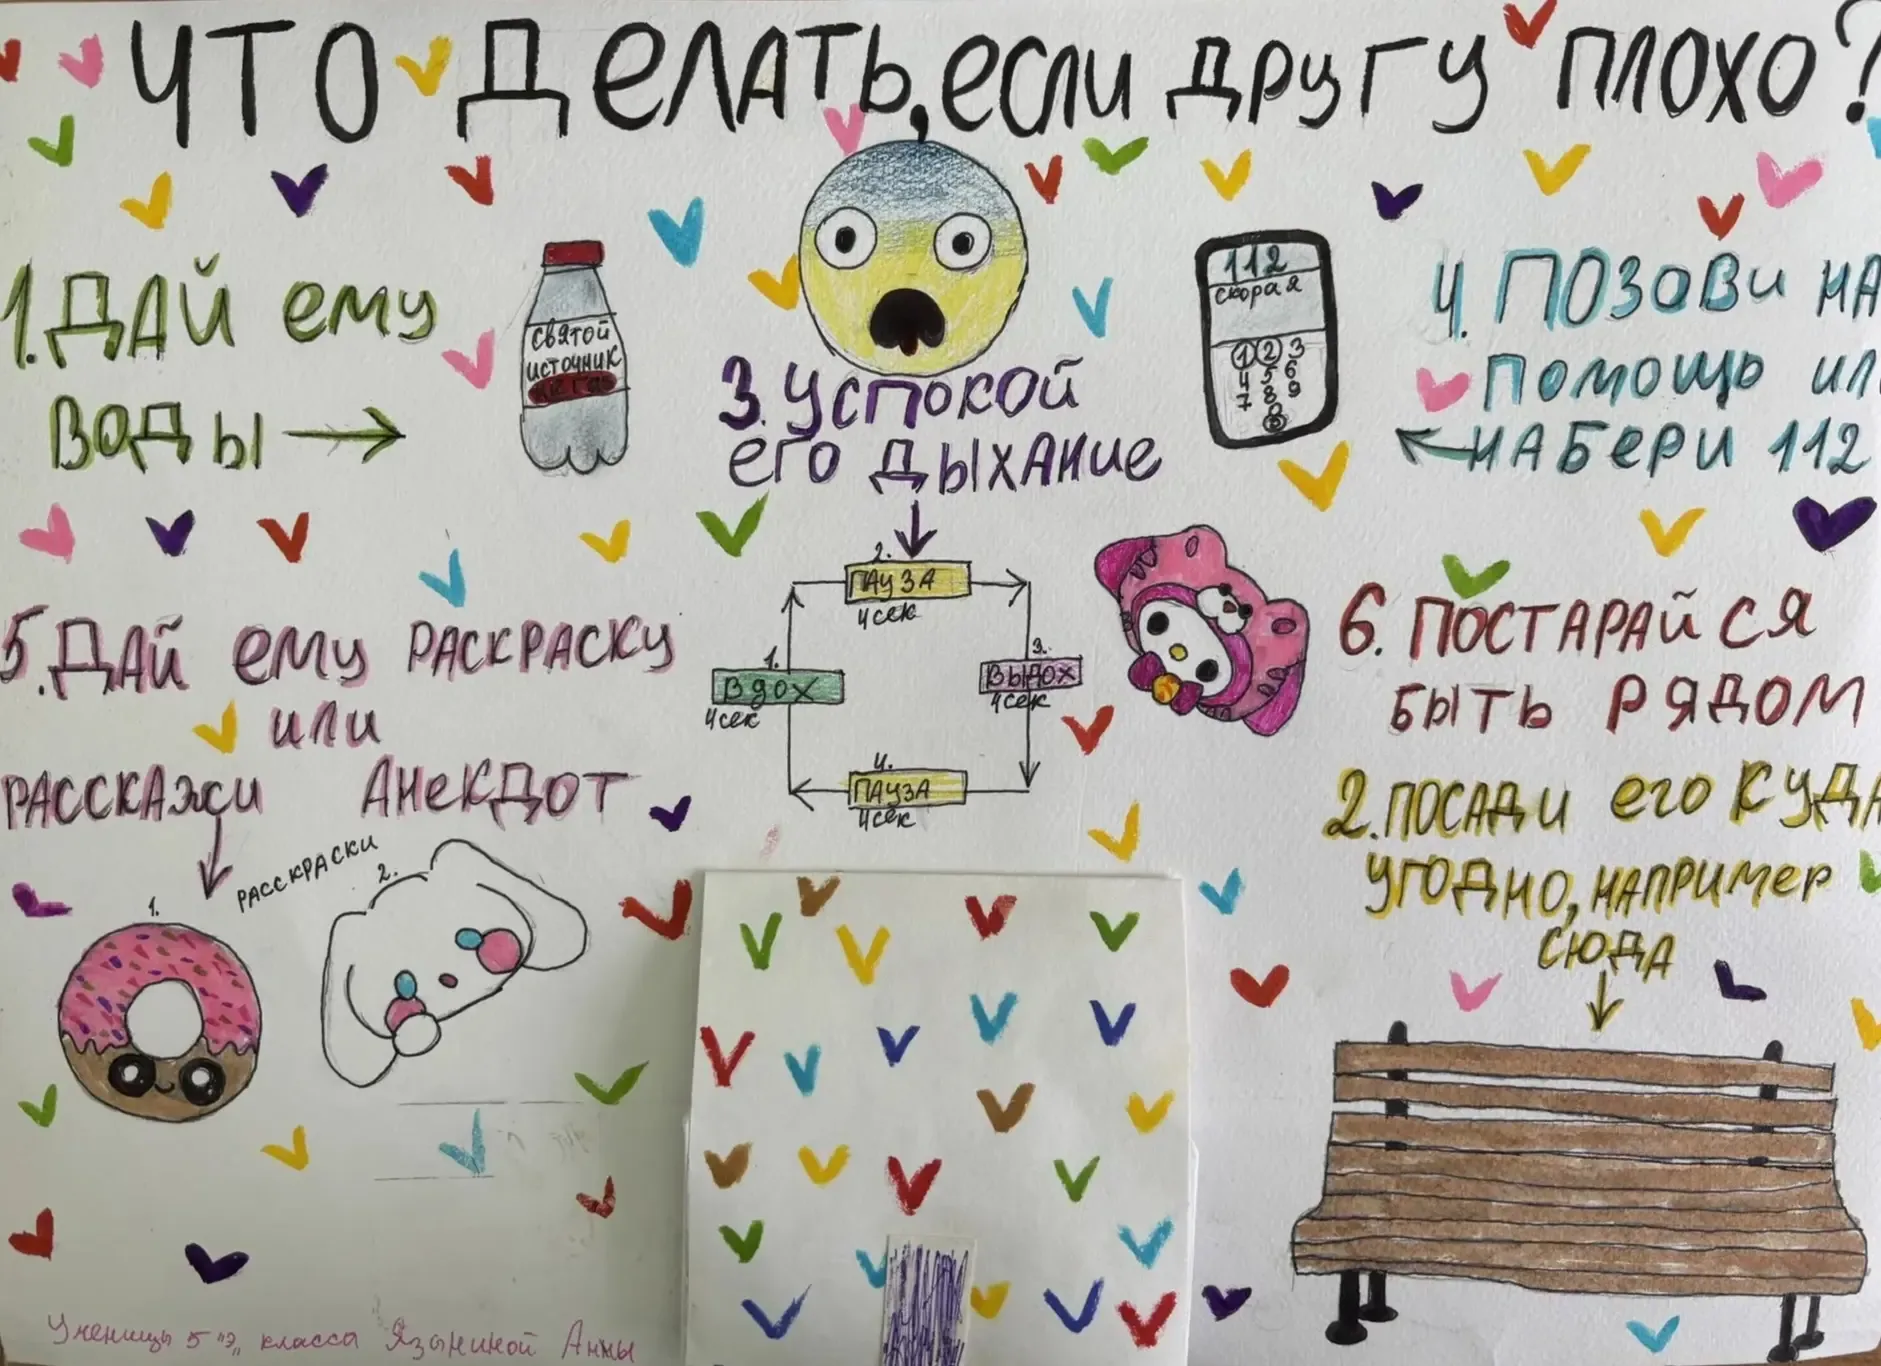 ЧТО ДЕЛАТЬ, если другу плохо?
1. ДАЙ ему
ВОДЫ
СВЯТОЙ
ИСТОЧНИК
3. УСПОКОЙ
его ДЫХАНие
112
скорая
1 2 3
4 5 6
7 8 9
0
4. ПОЗОВи НА
помощь или
НАБЕРИ 112
5. ДАЙ ему РАСКРАСКУ
или
РАССКАжи АНеКДОТ
РАССКРАСКИ
1.
2.
2.
ПАУЗА
4сек
1.
ВДОХ
4сек
3.
ВЫДОХ
4сек
4.
ПАУЗА
4сек
6. ПОСТАРАЙСЯ
БЫТЬ РЯДОМ
2. ПОСАДИ его КУДА
УГОДНО, НАПРИмер
СЮДА
Ученицы 5 "Э" класса Языниной Анны